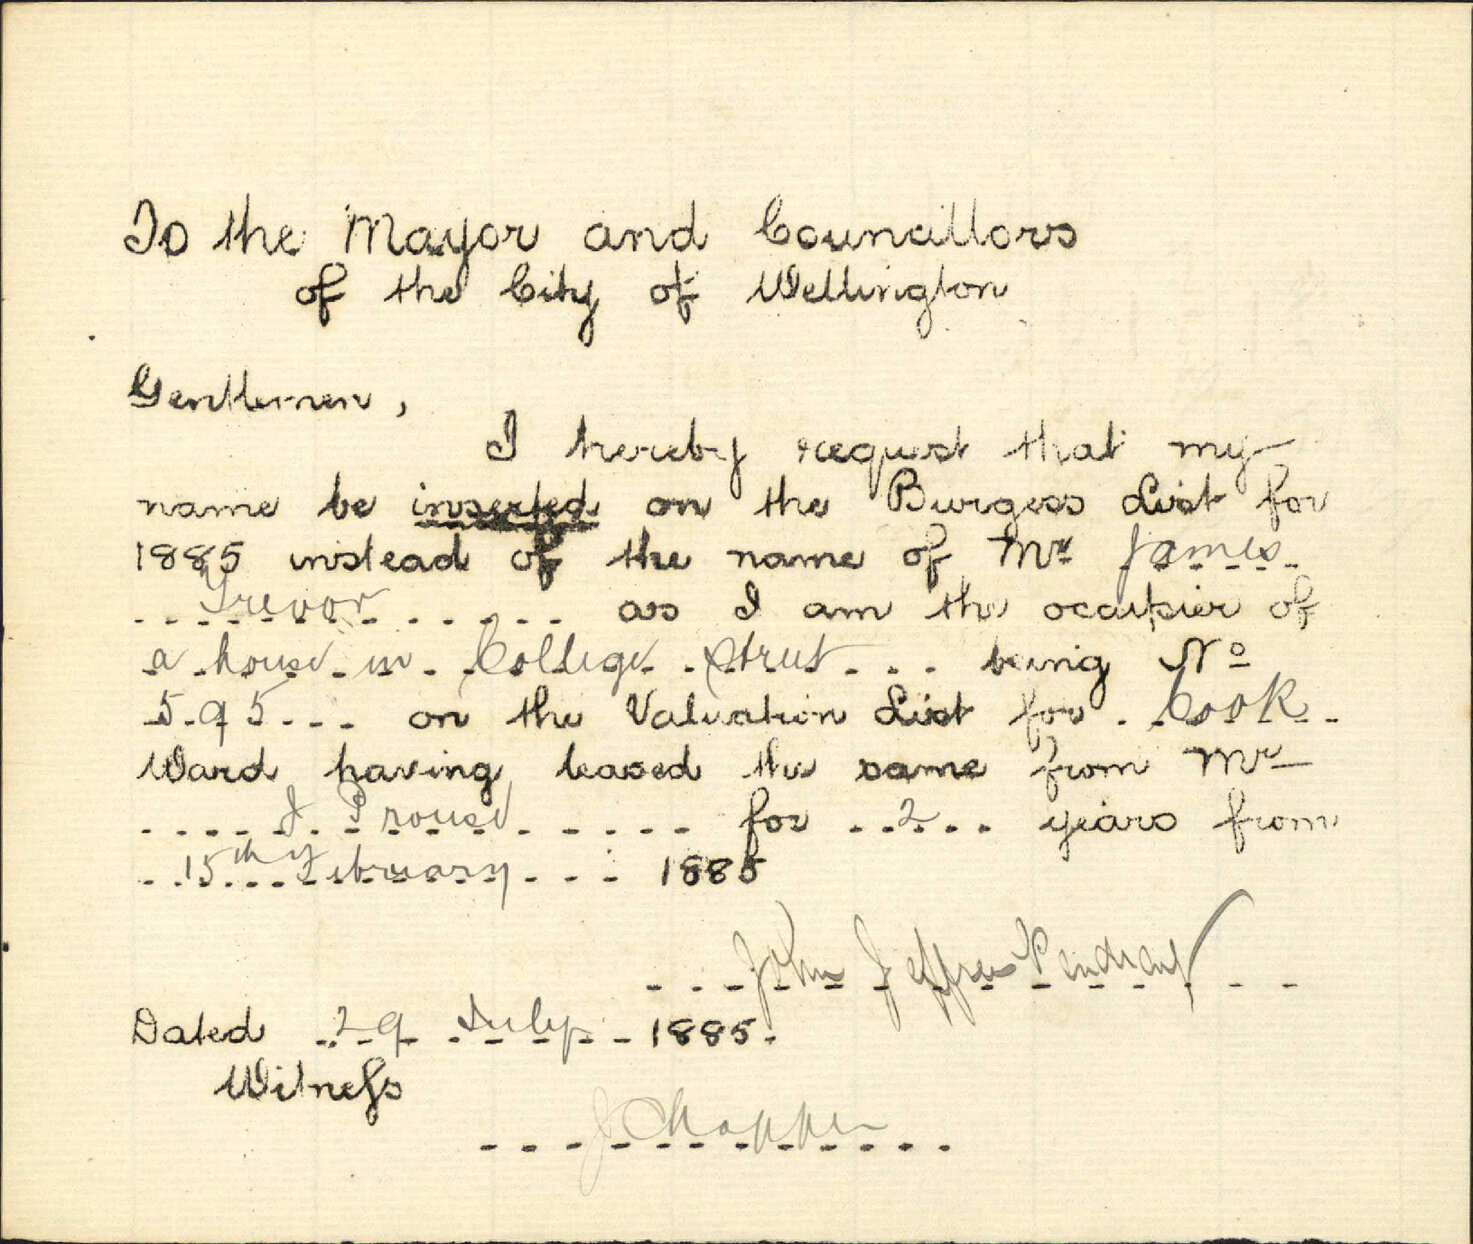 To the Mayor and Councillors
of the City of Wellington
Gentlemen,
I hereby request that my
name be inserted on the Burgess List for
1885 instead of the name of Mr James
Trevor as I am the occupier of
a house in College Street being No
595 on the Valuation List for Cook
Ward having leased the same from Mr
J Prouse for 2 years from
15th February 1885
John Jeffries
Dated 29 July 1885.
Witness
J